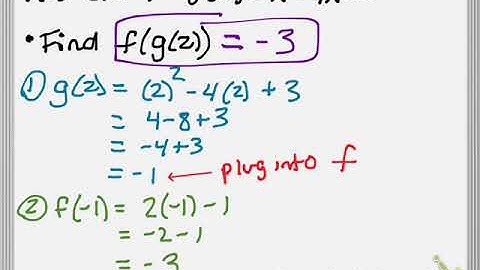 • Find f(g(2)) = -3
① g(2) = (2)² - 4(2) + 3
= 4 - 8 + 3
= -4 + 3
= -1 ← plug into f
② f(-1) = 2(-1) - 1
= -2 - 1
= -3